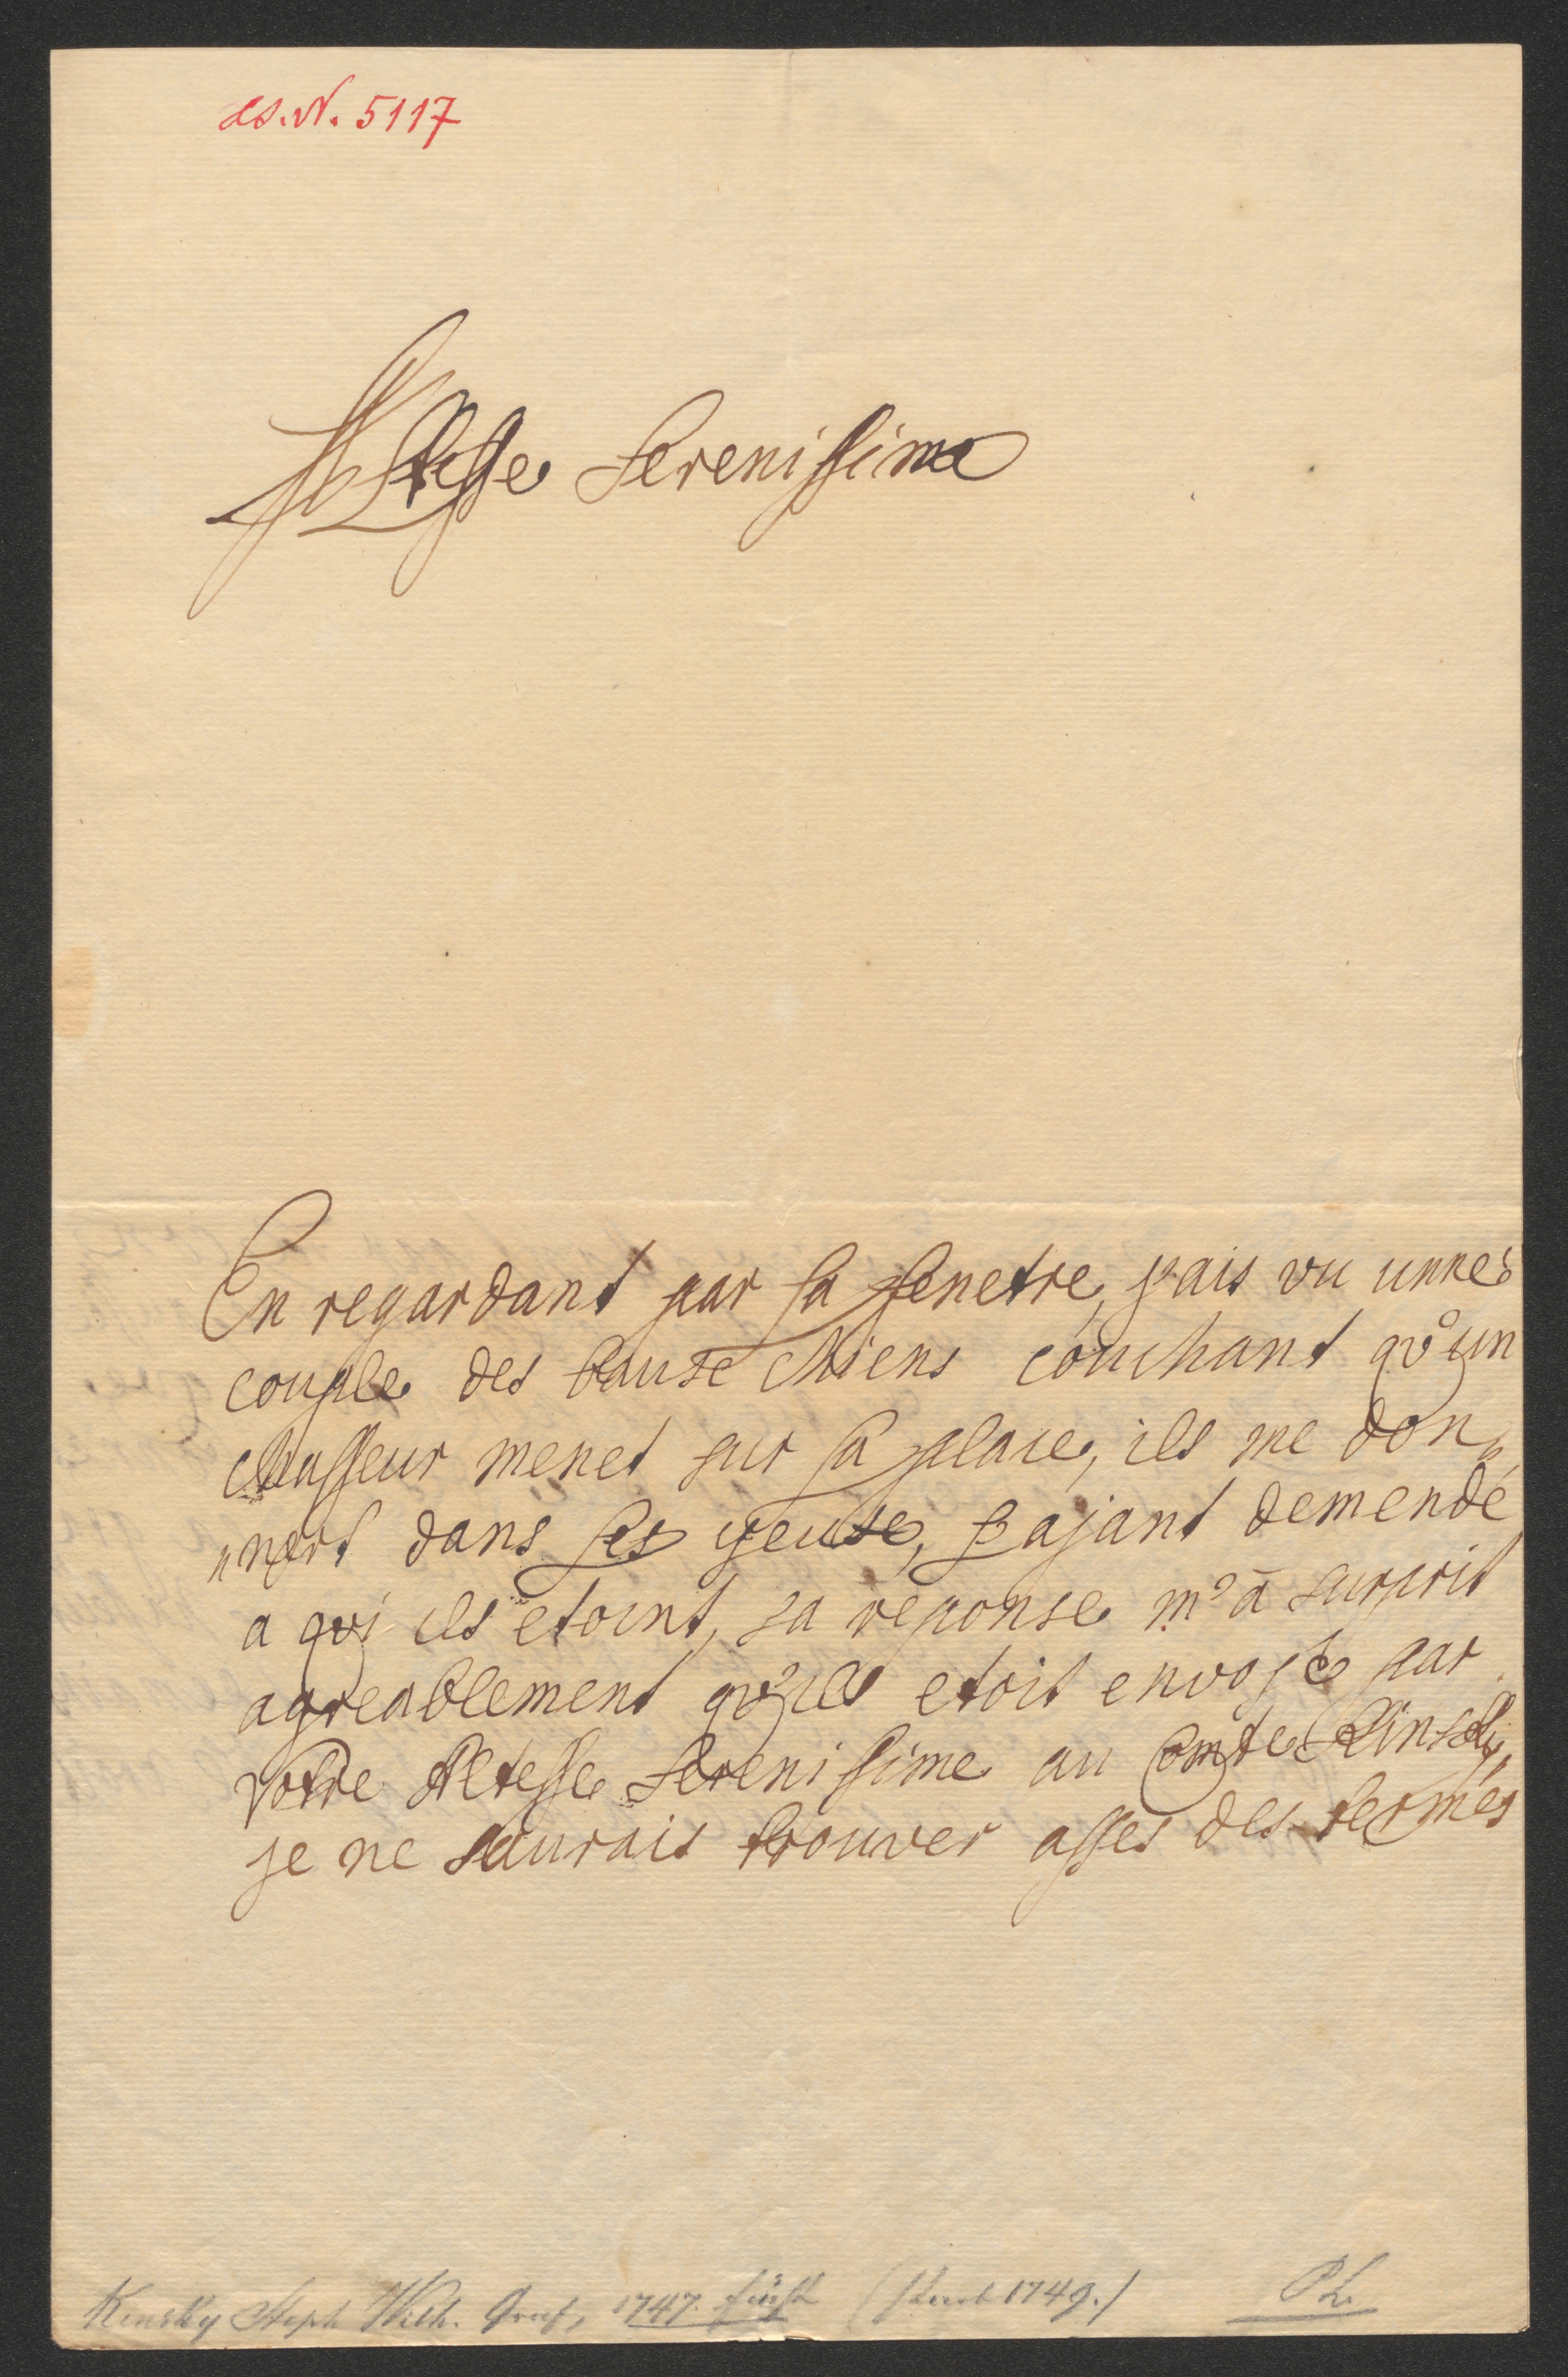 N. 5117
Altesse Serenissime
En regardant par la fenetre, j'ais vu unne
couple des bause chiens couchant qv'un
chasseur menet sur la place, ils me don„
„nert dans les yeuse, l'ajant demendé
a qvi ils etoint, sa reponse m'a surprit
agreablement qv'ils etoit envojé par
Votre Altesse Serenissime au Comte Kinsky,
je ne saurais trouver asses des termes
Kinsky Steph. Wilh. Graf, 1747. Fürst (starb 1749.)